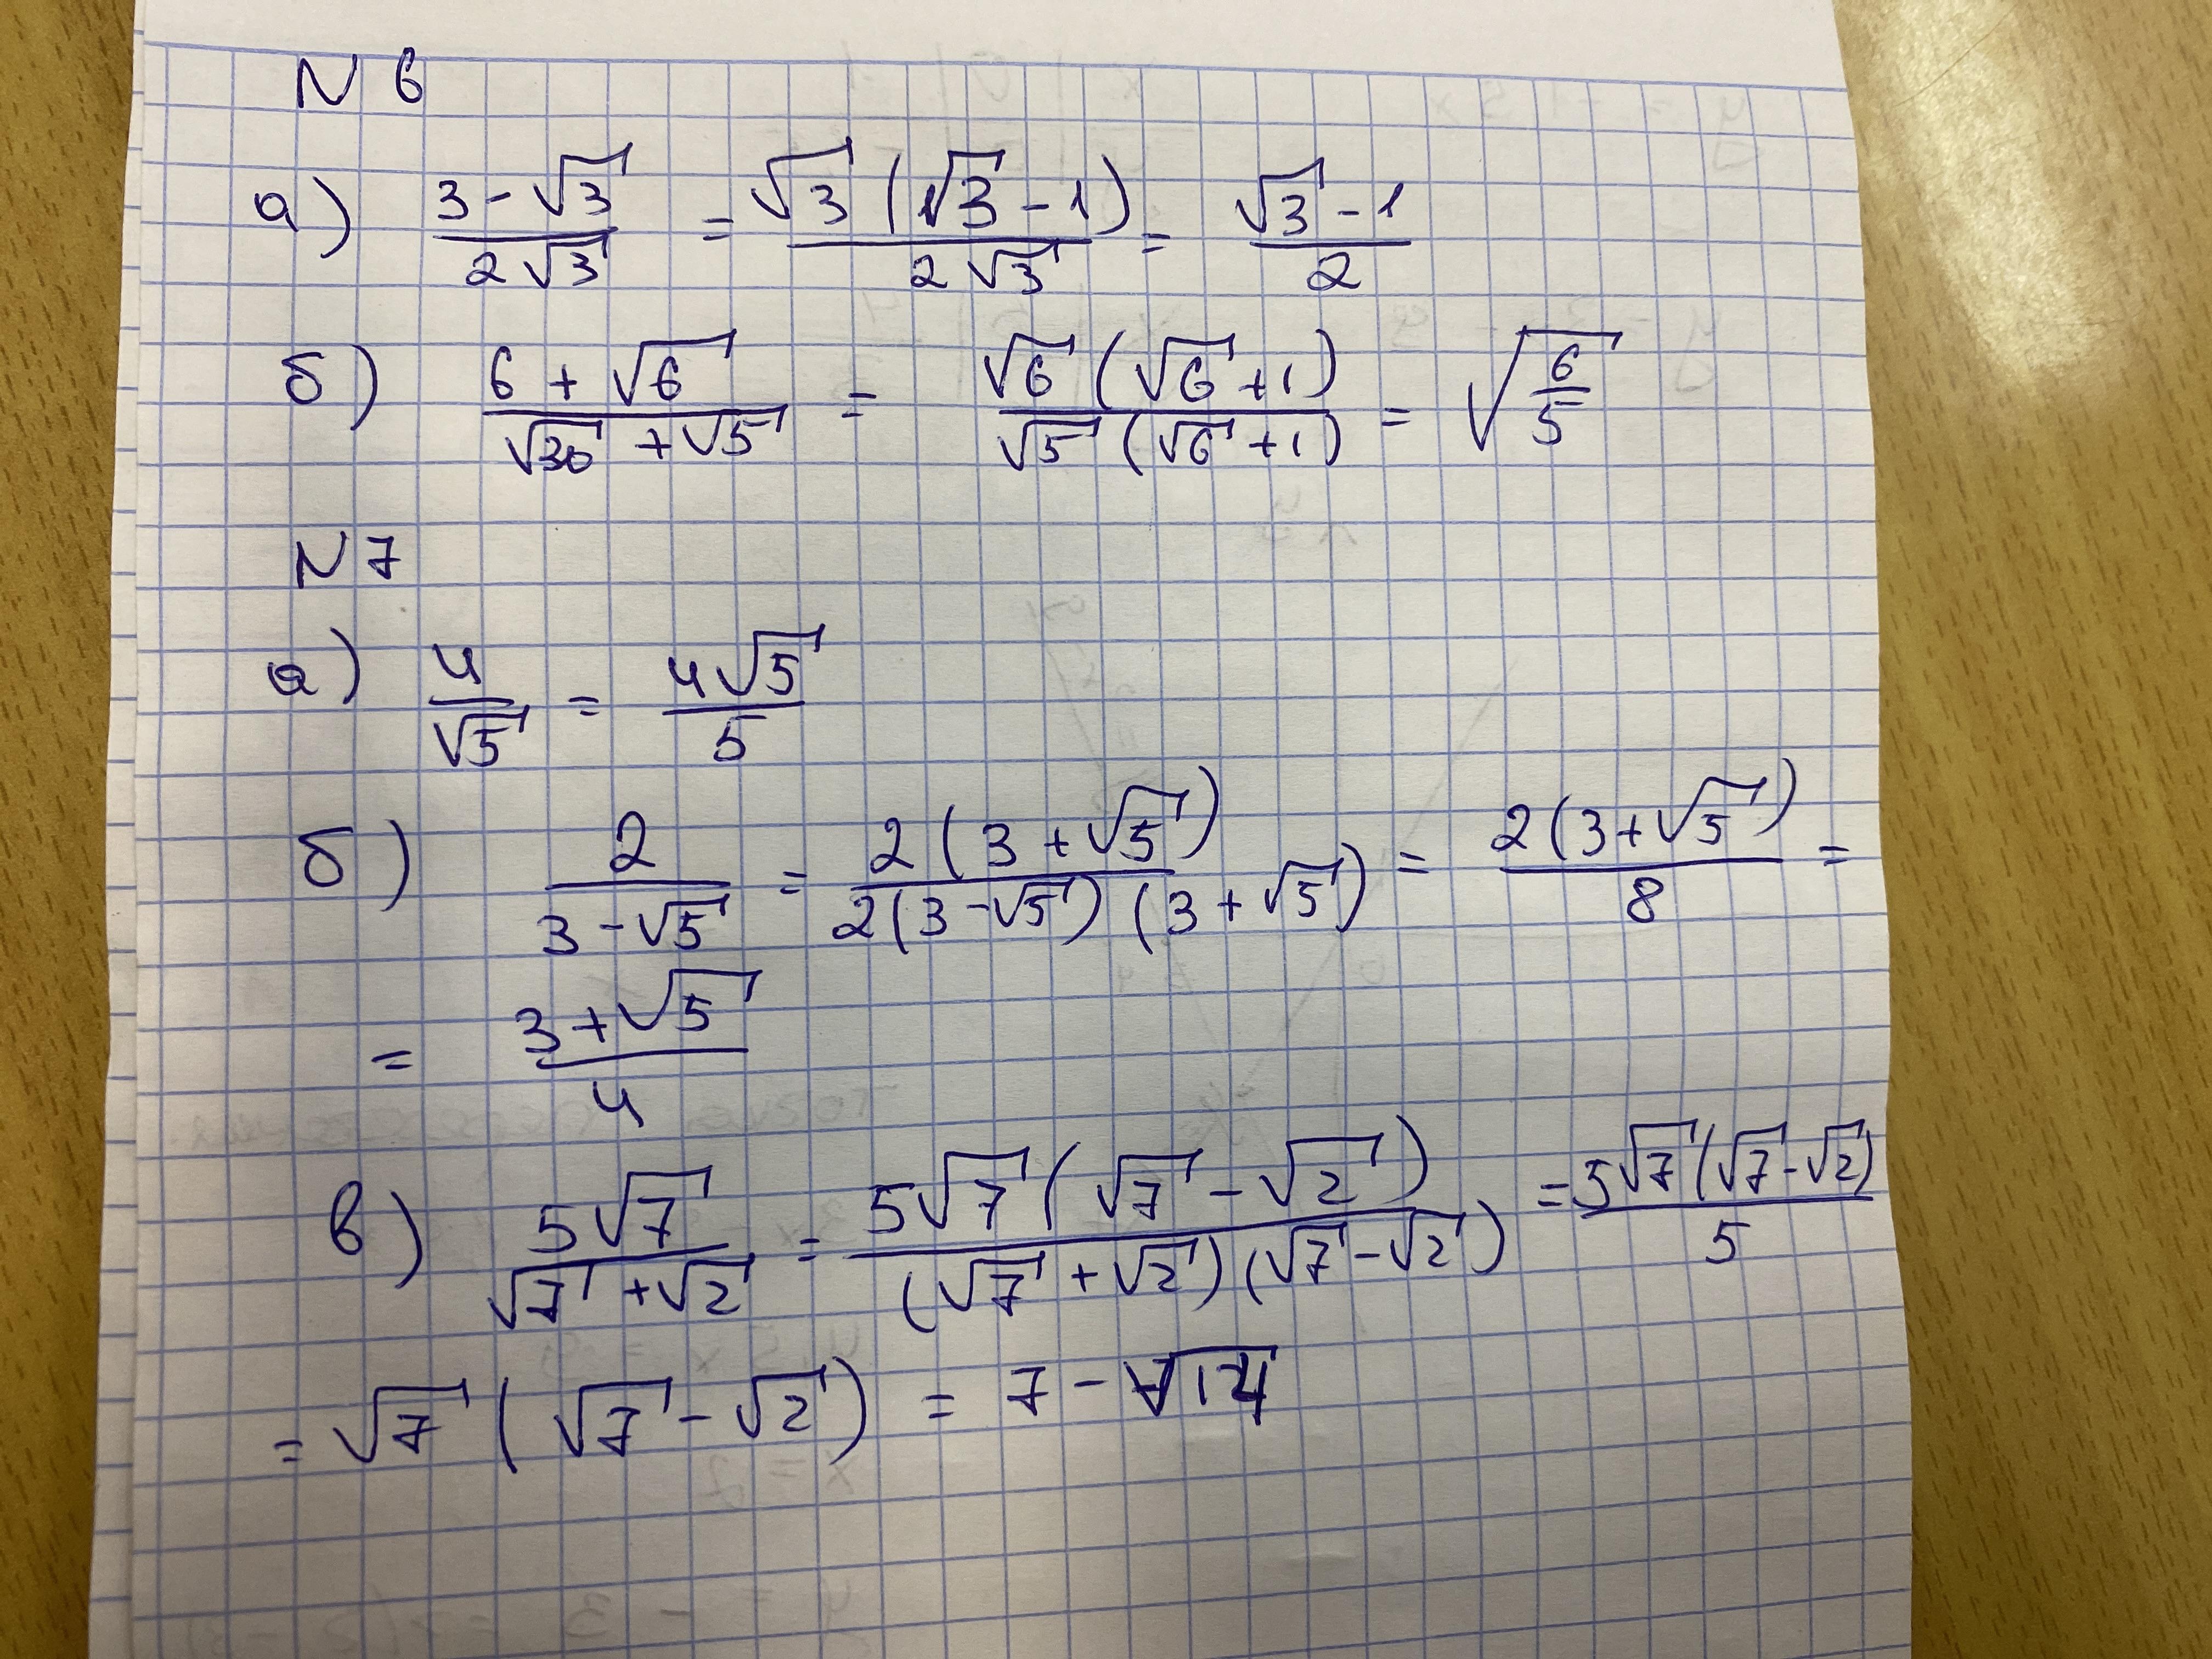 N 6
а) (3 - √3)/(2√3) = (√3 (√3 - 1))/(2√3) = (√3 - 1)/2
б) (6 + √6)/(√30 + √5) = (√6 (√6 + 1))/(√5 (√6 + 1)) = √(6/5)
N 7
а) 4/√5 = (4√5)/5
б) 2/(3 - √5) = (2(3 + √5))/(2(3 - √5)(3 + √5)) = (2(3 + √5))/8 =
= (3 + √5)/4
в) (5√7)/(√7 + √2) = (5√7(√7 - √2))/((√7 + √2)(√7 - √2)) = (5√7(√7 - √2))/5
= √7 (√7 - √2) = 7 - √14